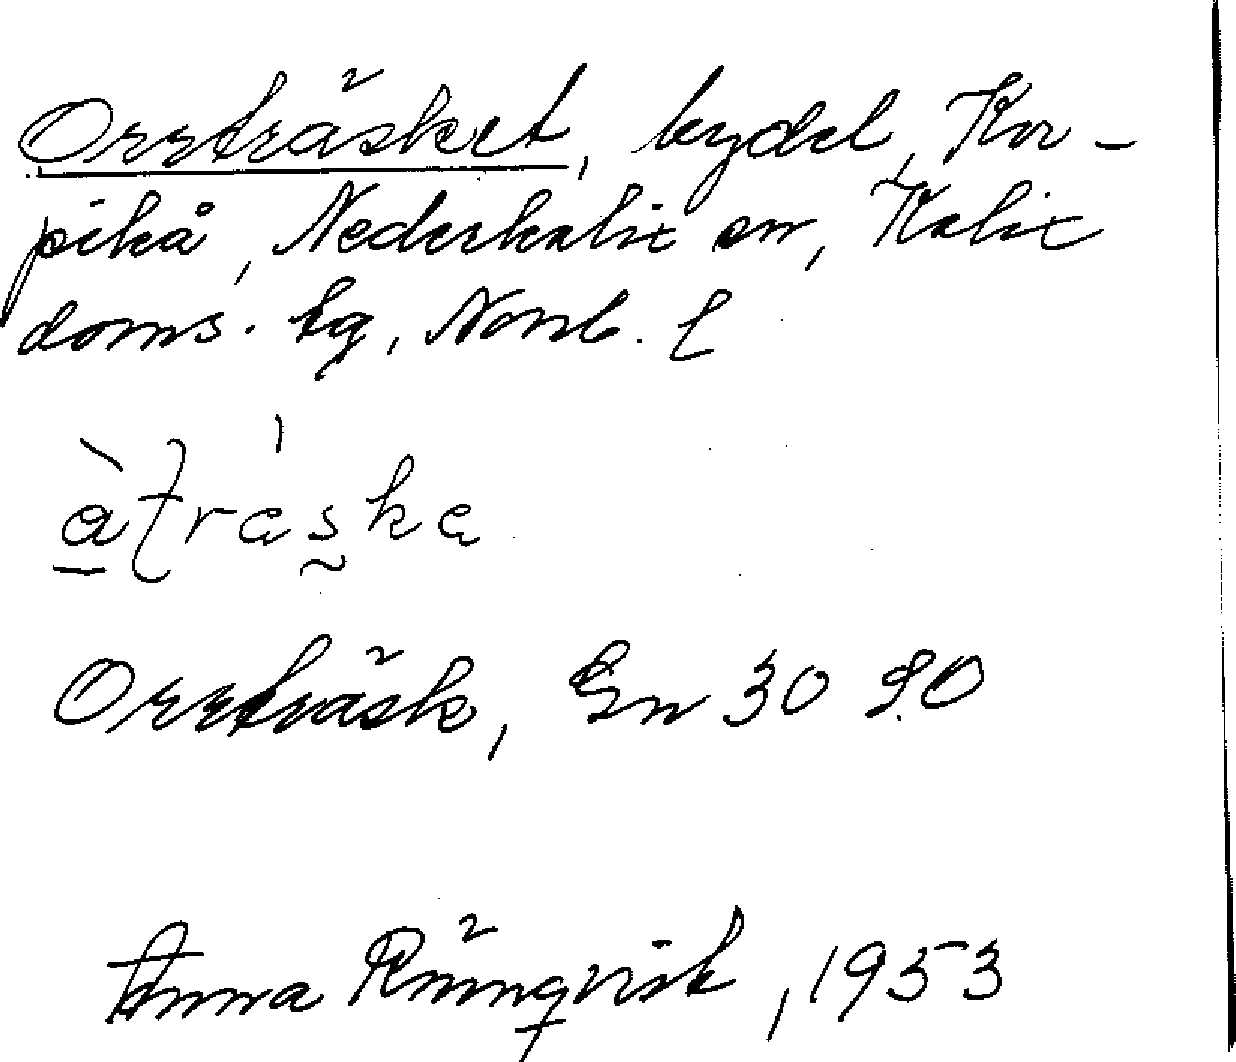 Orrträsket, bydel, Kor-
pikå, Nederkalix sn, Kalix
doms. tg, Norrb. l
Orrträsk, Gn 30 SO
Anna Rönnqvist, 1953